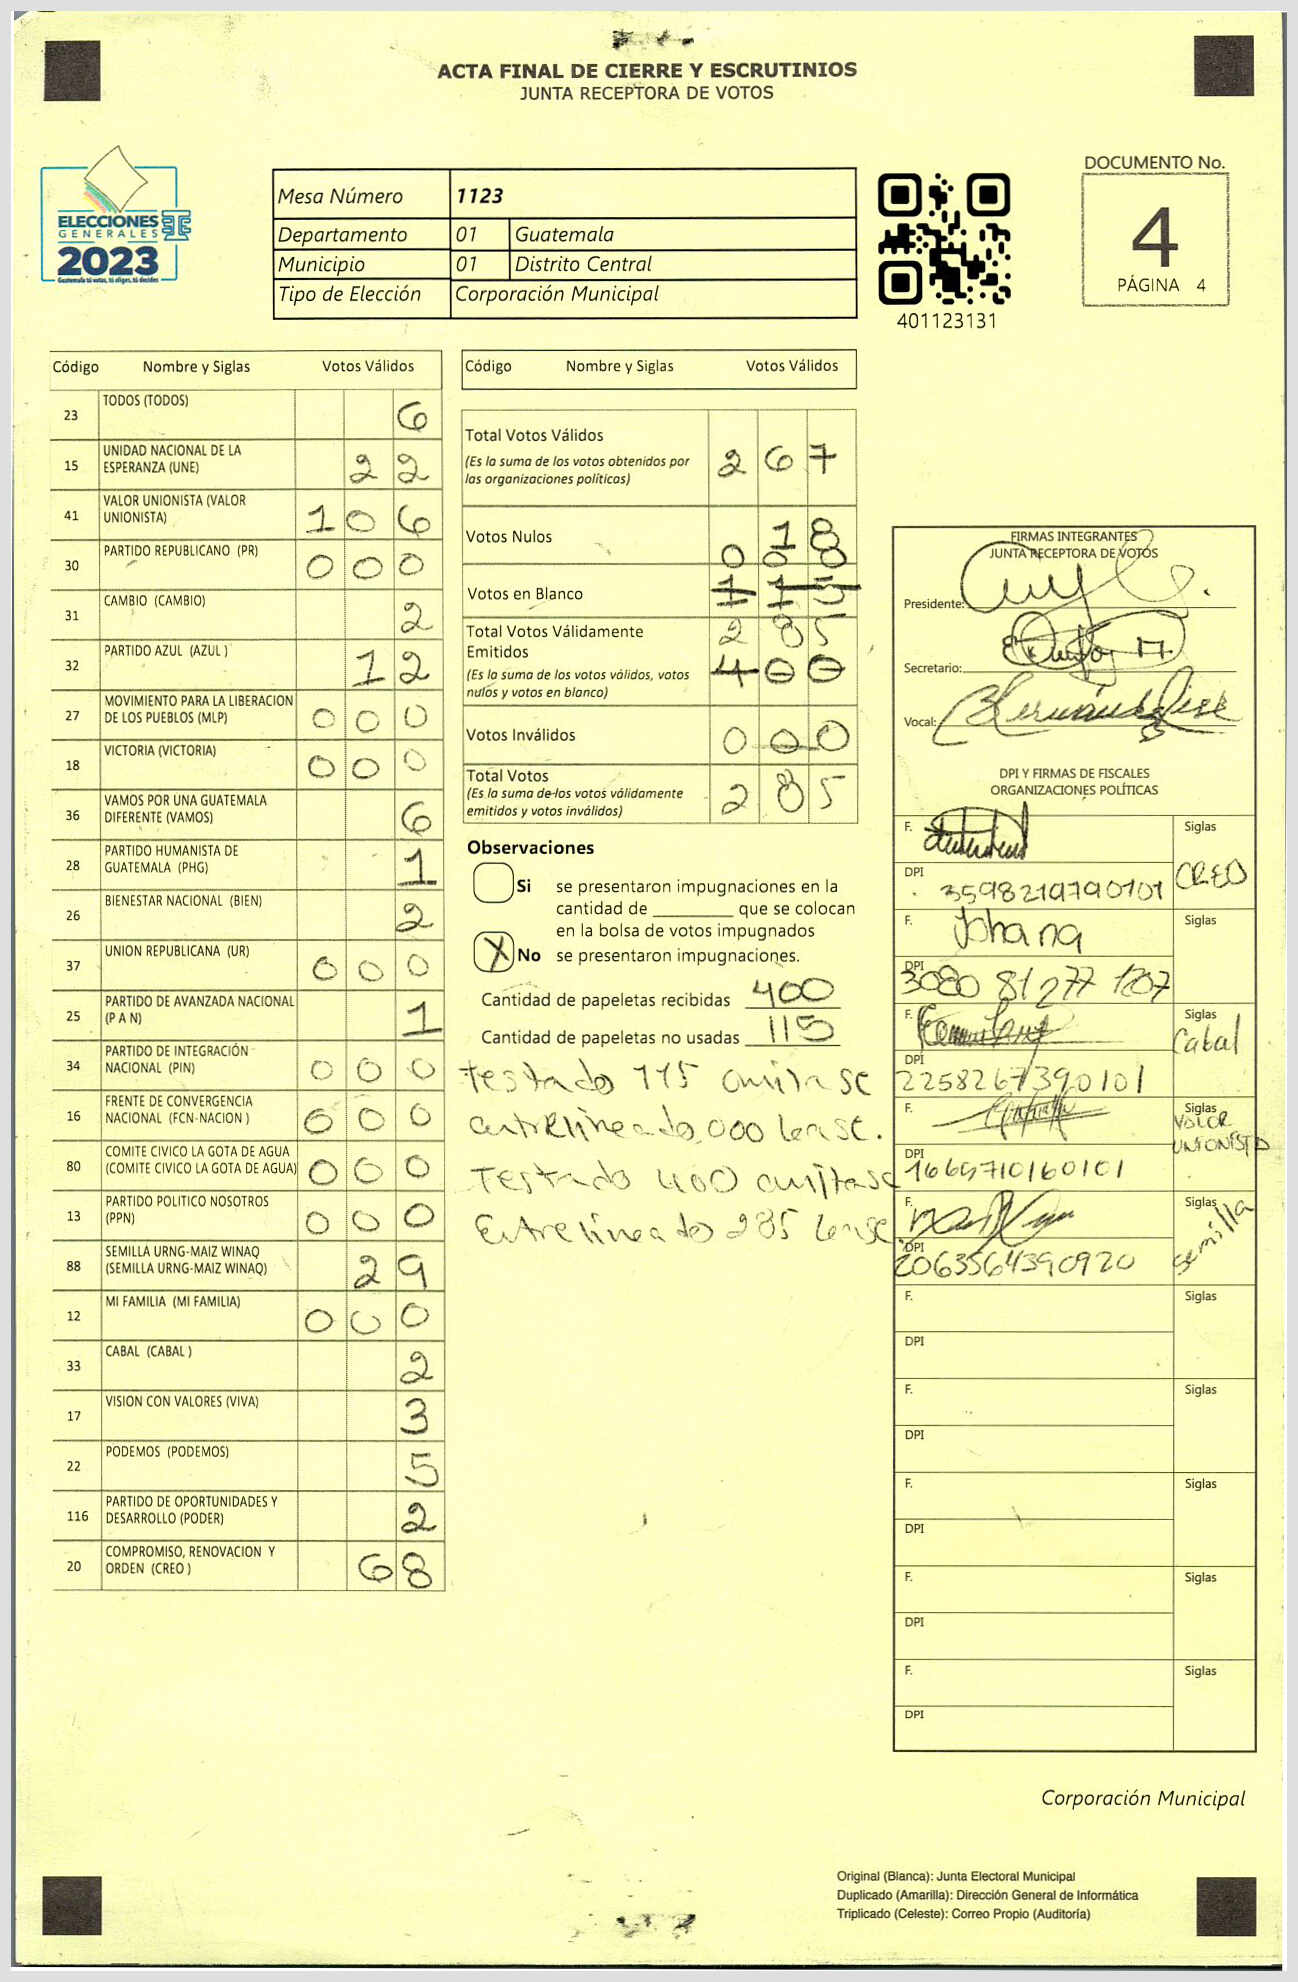 ACTA FINAL DE CIERRE Y ESCRUTINIOS
JUNTA RECEPTORA DE VOTOS
ELECCIONES
GENERALES
2023
Guatemala tú votas, tú eliges, tú decides
Mesa Número 1123
Departamento 01 Guatemala
Municipio 01 Distrito Central
Tipo de Elección Corporación Municipal
401123131
DOCUMENTO No.
4
PÁGINA 4
Código Nombre y Siglas Votos Válidos
23 TODOS (TODOS) 6
15 UNIDAD NACIONAL DE LA ESPERANZA (UNE) 22
41 VALOR UNIONISTA (VALOR UNIONISTA) 106
30 PARTIDO REPUBLICANO (PR) 000
31 CAMBIO (CAMBIO) 2
32 PARTIDO AZUL (AZUL ) 12
27 MOVIMIENTO PARA LA LIBERACION DE LOS PUEBLOS (MLP) 000
18 VICTORIA (VICTORIA) 000
36 VAMOS POR UNA GUATEMALA DIFERENTE (VAMOS) 6
28 PARTIDO HUMANISTA DE GUATEMALA (PHG) 1
26 BIENESTAR NACIONAL (BIEN) 2
37 UNION REPUBLICANA (UR) 000
25 PARTIDO DE AVANZADA NACIONAL (P A N) 1
34 PARTIDO DE INTEGRACIÓN NACIONAL (PIN) 000
16 FRENTE DE CONVERGENCIA NACIONAL (FCN-NACION ) 000
80 COMITE CIVICO LA GOTA DE AGUA (COMITE CIVICO LA GOTA DE AGUA) 000
13 PARTIDO POLITICO NOSOTROS (PPN) 000
88 SEMILLA URNG-MAIZ WINAQ (SEMILLA URNG-MAIZ WINAQ) 29
12 MI FAMILIA (MI FAMILIA) 000
33 CABAL (CABAL ) 2
17 VISION CON VALORES (VIVA) 3
22 PODEMOS (PODEMOS) 5
116 PARTIDO DE OPORTUNIDADES Y DESARROLLO (PODER) 2
20 COMPROMISO, RENOVACION Y ORDEN (CREO ) 68
Código Nombre y Siglas Votos Válidos
Total Votos Válidos 267
(Es la suma de los votos obtenidos por
las organizaciones políticas)
Votos Nulos 18
000
Votos en Blanco 115
Total Votos Válidamente 285
Emitidos
(Es la suma de los votos válidos, votos 400
nulos y votos en blanco)
Votos Inválidos 000
Total Votos 285
(Es la suma de los votos válidamente
emitidos y votos inválidos)
Observaciones
Si se presentaron impugnaciones en la
cantidad de ________ que se colocan
en la bolsa de votos impugnados
X No se presentaron impugnaciones.
Cantidad de papeletas recibidas 400
Cantidad de papeletas no usadas 115
Testado 115 omitase
entrelineado 000 lease.
Testado 400 omitase
Entrelineado 285 lease
FIRMAS INTEGRANTES
JUNTA RECEPTORA DE VOTOS
Presidente:
Secretario:
Vocal:
DPI Y FIRMAS DE FISCALES
ORGANIZACIONES POLÍTICAS
F. Siglas
CREO
DPI 3598219790101
F. Johana Siglas
DPI 3080 81277 1207
F. Siglas
Cabal
DPI 2258267390101
F. Siglas
VALOR
UNIONISTA
DPI 1669710160101
F. Siglas
semilla
DPI 2063564390920
F. Siglas
DPI
F. Siglas
DPI
F. Siglas
DPI
F. Siglas
DPI
F. Siglas
DPI
Corporación Municipal
Original (Blanca): Junta Electoral Municipal
Duplicado (Amarilla): Dirección General de Informática
Triplicado (Celeste): Correo Propio (Auditoría)